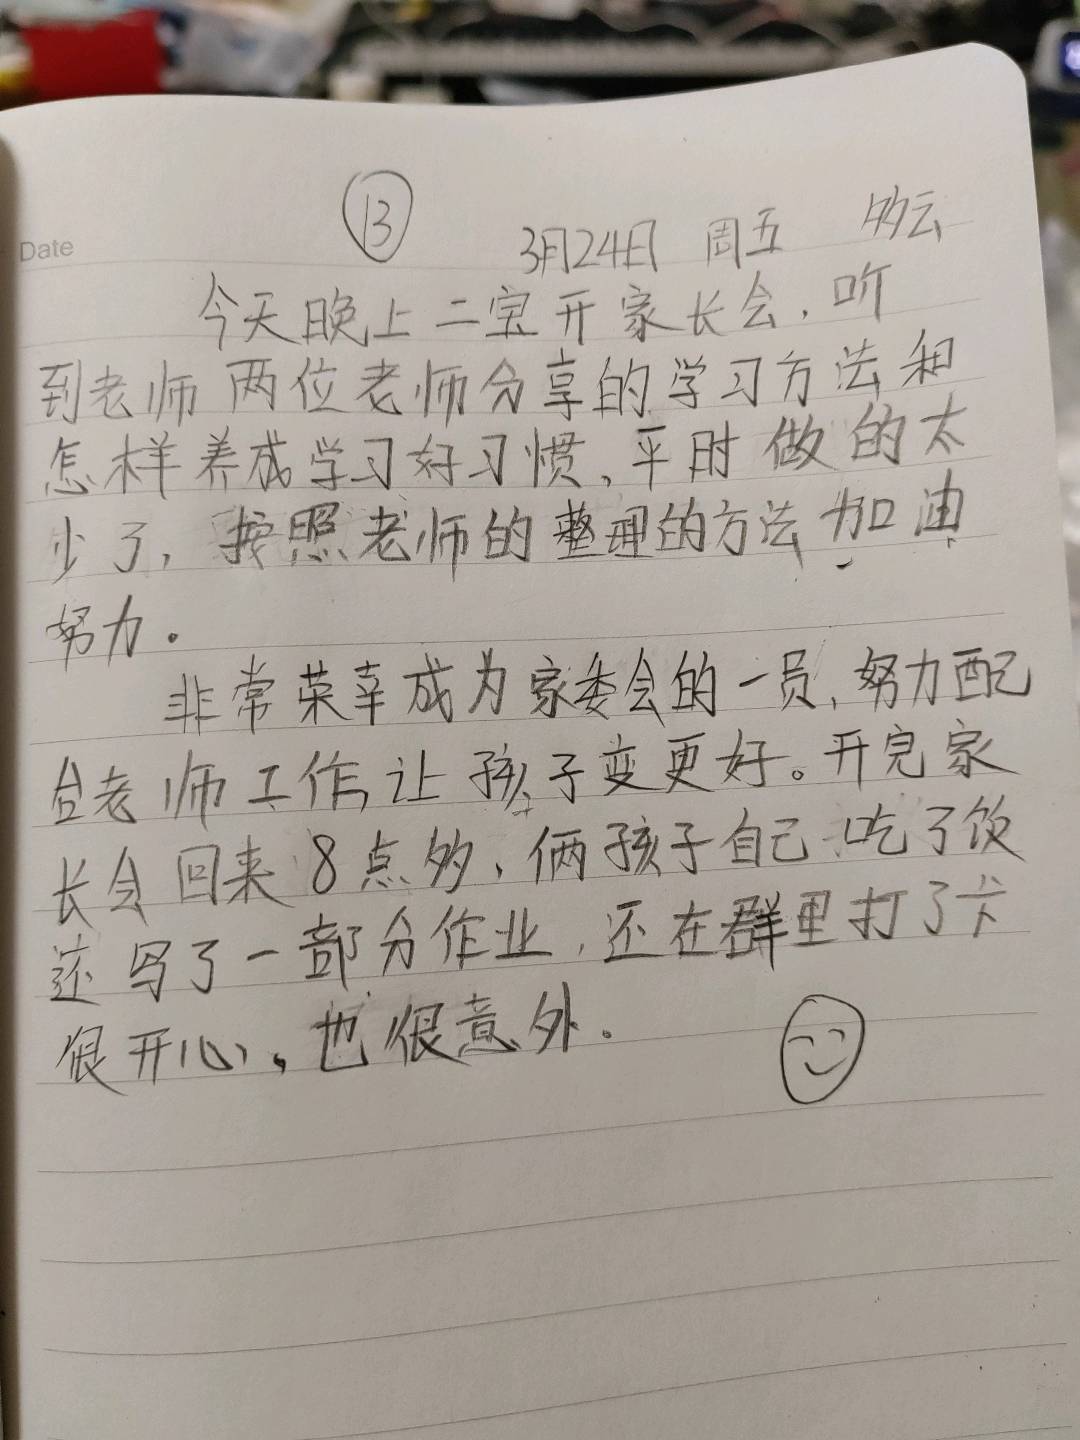 Date
⑬
3月24日 周五 多云
今天晚上二宝开家长会,听
到老师两位老师分享的学习方法和
怎样养成学习好习惯,平时做的太
少了,按照老师的整理的方法加油
努力.
非常荣幸成为家委会的一员,努力配
合老师工作,让孩子变更好。开完家
长会回来8点多,俩孩子自己吃了饭
还写了一部分作业,还在群里打了卡
很开心,也很意外.